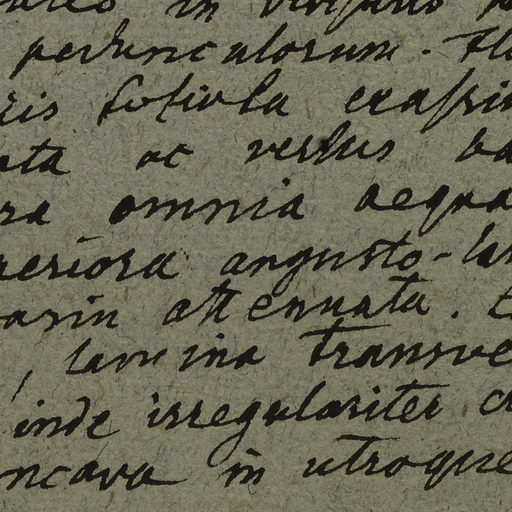 in
pedunculorum. Flo
ris foliola crassi
ata ac versus ba
ra omnia aequa
periora angusto-lan
asin attenuata. 
, lamina transve
inde irregulariter cr
ncava in utroque